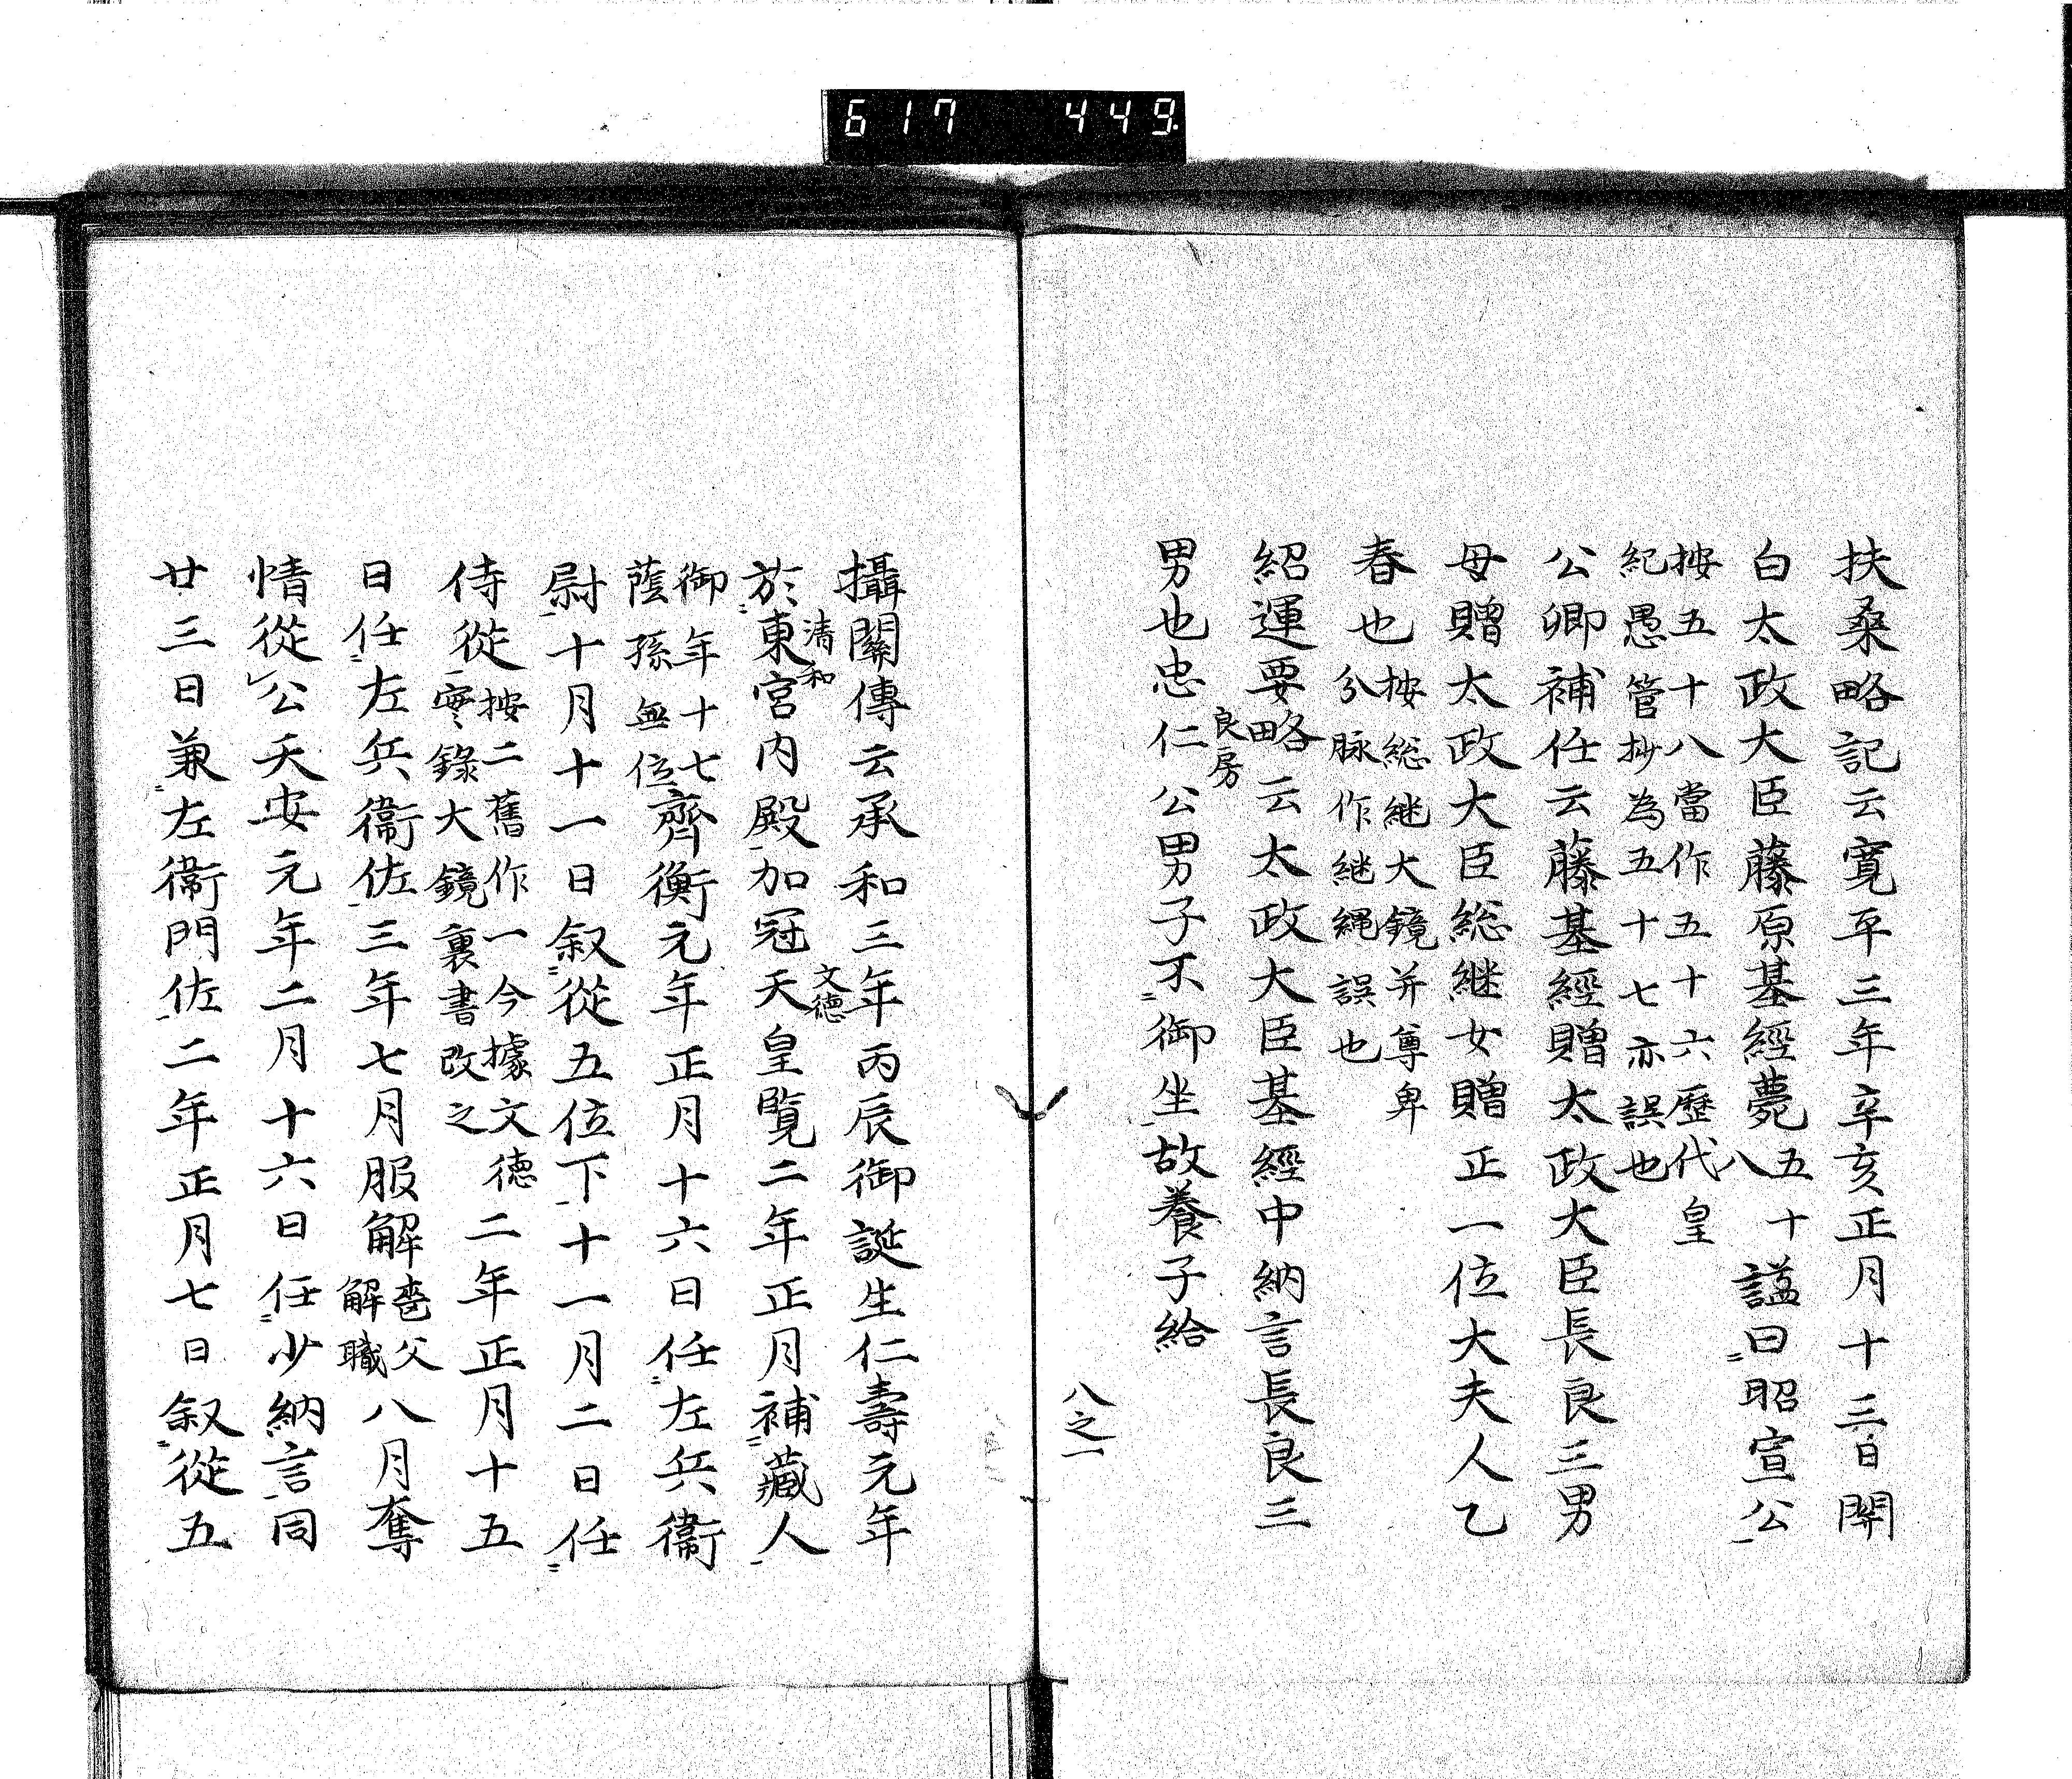 617 449
扶桑略記云寛平三年辛亥正月十三日関
白太政大臣藤原基經薨五十八謚曰昭宣公
按五十八當作五十六歷代皇
紀愚管抄為五十七亦誤也
公卿補任云藤基經贈太政大臣長良三男
母贈太政大臣総継女贈正一位大夫人乙
春也按総継大鏡并尊卑
分脉作継縄誤也
紹運要略云太政大臣基經中納言長良三
良房
男也忠仁公男子不御坐故養子給
八之一
攝關傳云承和三年丙辰御誕生仁壽元年
清和 文徳
於東宮内殿加冠天皇覧二年正月補藏人
御年十七
蔭孫無位齊衡元年正月十六日任左兵衞
尉十月十一日叙從五位下十一月二日任
侍從按二舊作一今據文徳
實錄大鏡裏書改之二年正月十五
日任左兵衞佐三年七月服解喪父
解職八月奪
情從公天安元年二月十六日任少納言同
廿三日兼左衞門佐二年正月七日叙從五